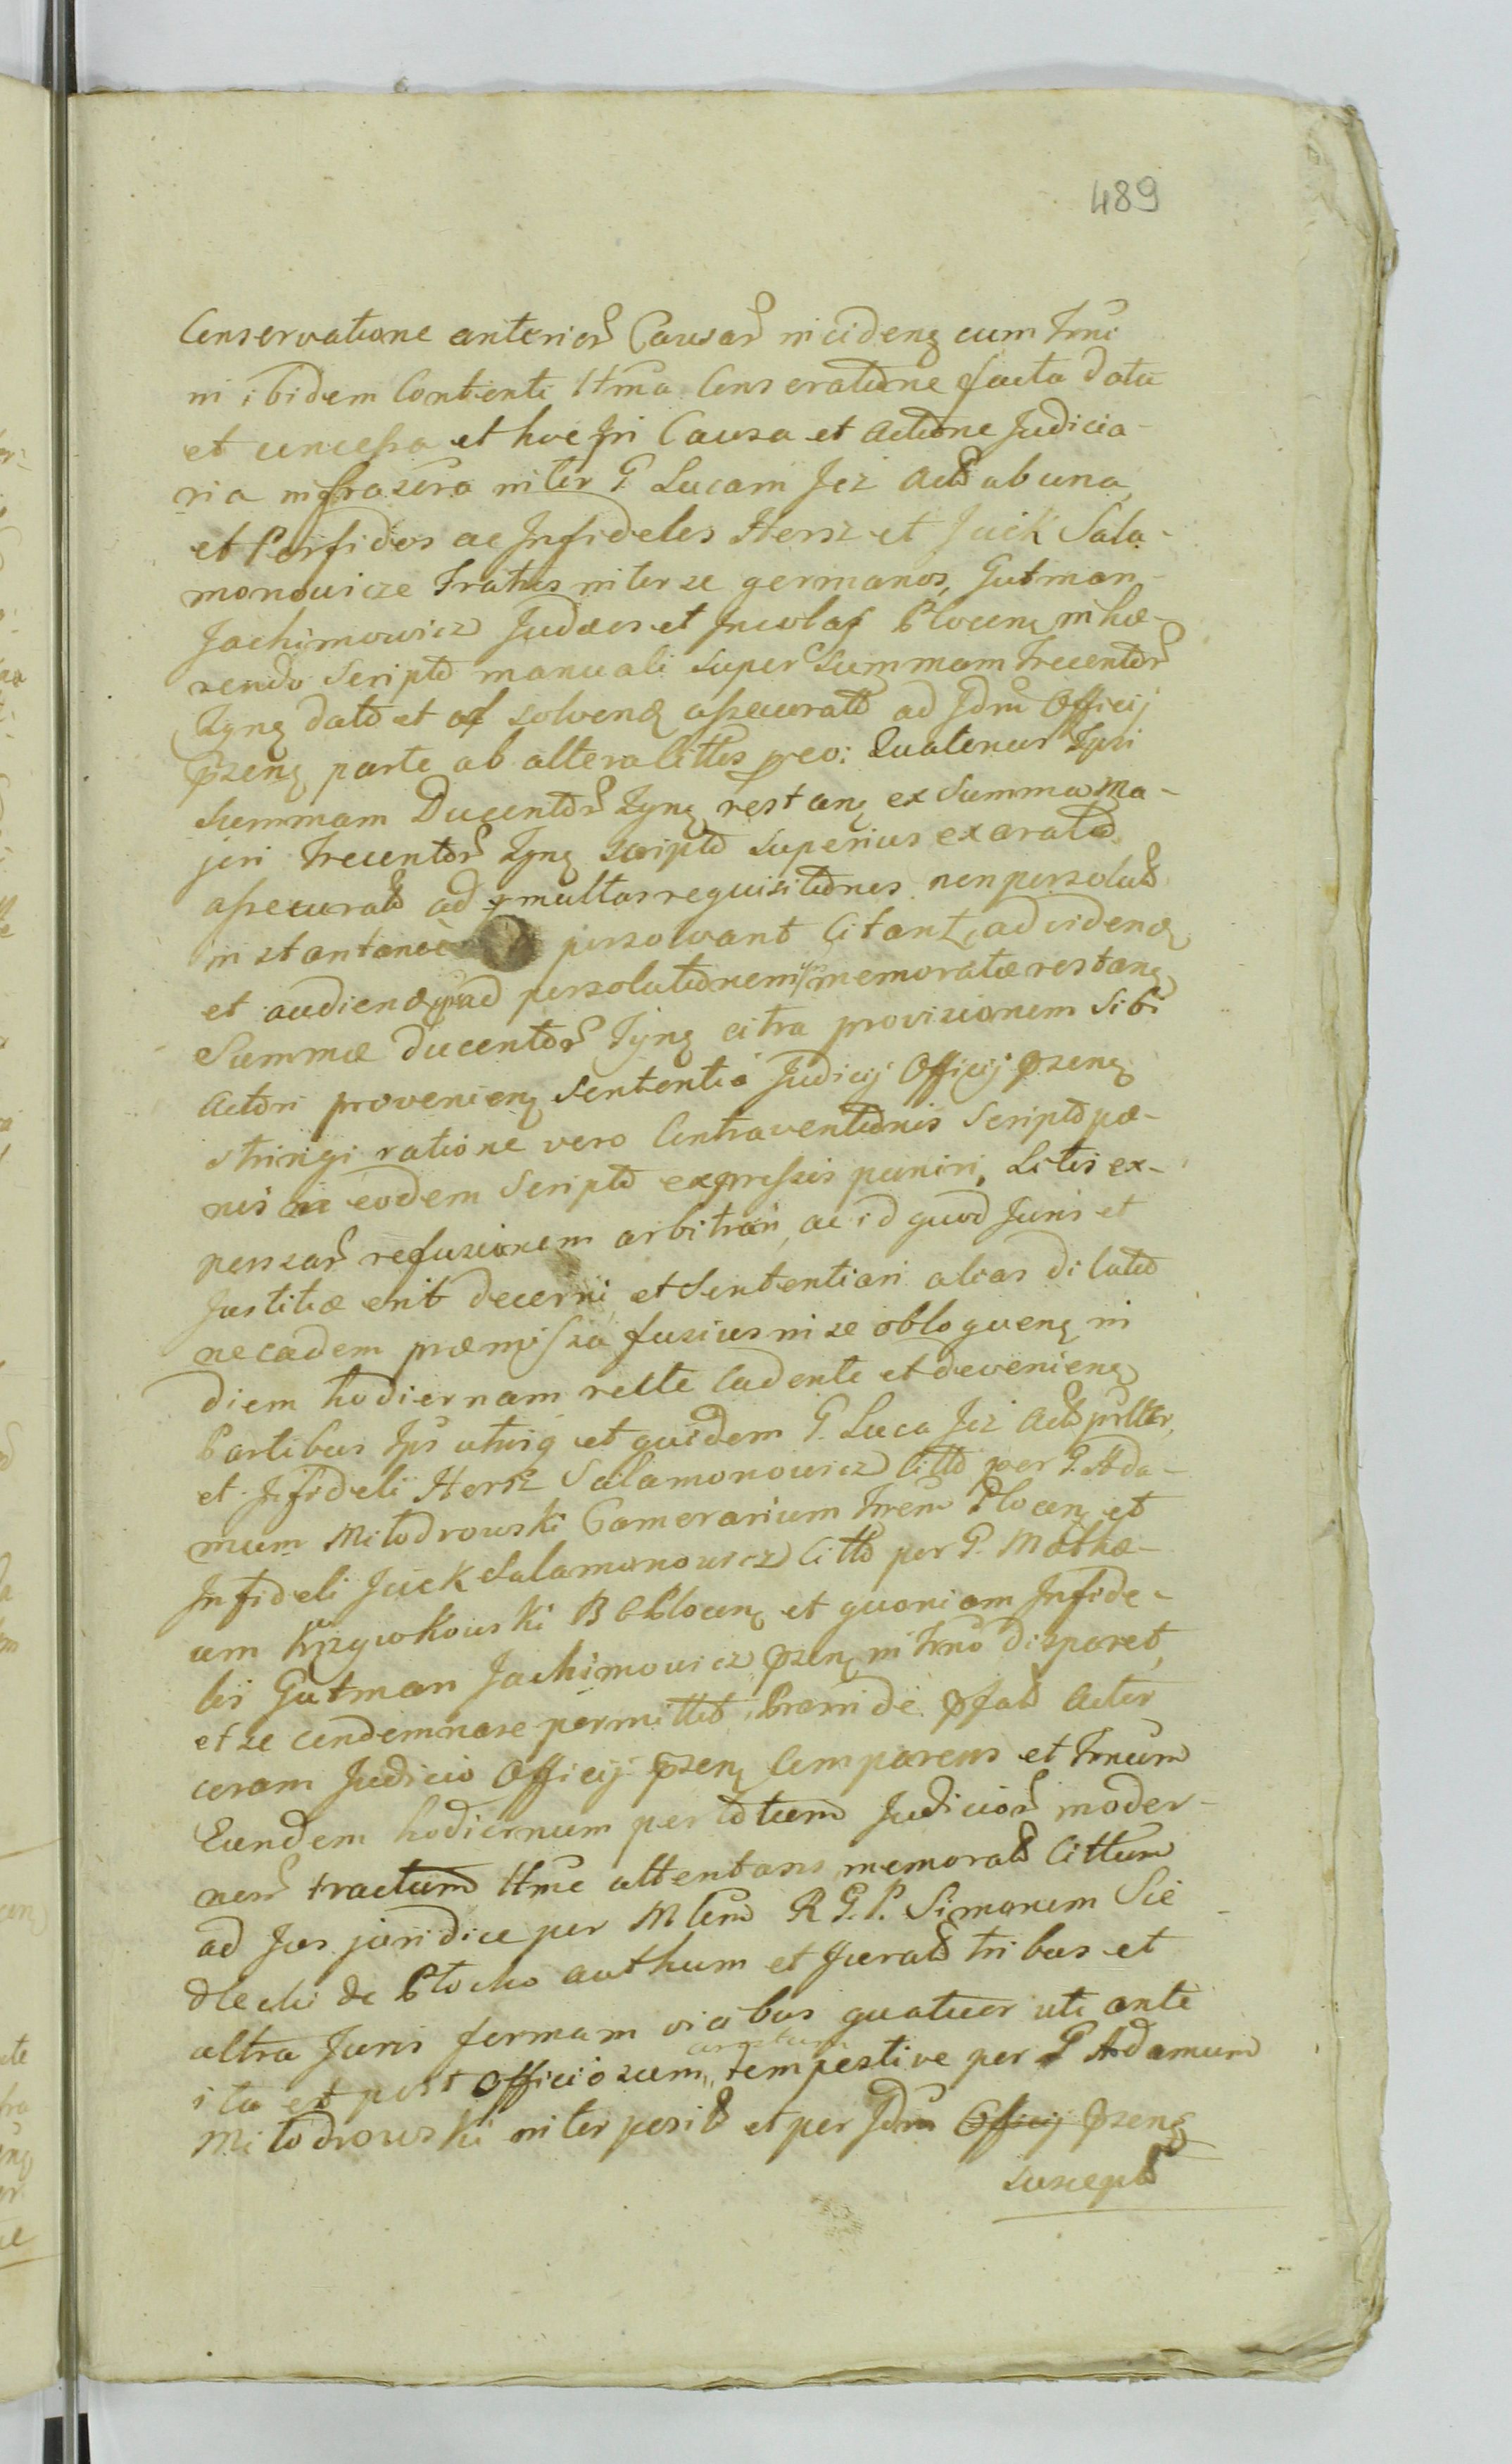 489
Conservatione anterior Causar incidenq cum Trni
in ibidem Contenti Ittma Conservatione facta data
et concessa et hocpri Causa et Actione Judicia-
ria infrascra inter G. Lucam Jez Act ab una,
et Perfidos ac Infideles Hersz et Juck Sala-
monowicze Fratres inter se germanos, Gutman
Jachimowicz Judæos et Incolas Plocenq inhæ-
rendo Scripto manuali super Summam Trecentor
Tynq dato et solvend assecurato ad Jdm Officij
pzenq parte ab altera littis preo: Quatenus Ipsi
Summam Ducentor Tynq restanq ex Summa Ma-
jori Trecentor Tynq Scripto superius exarato
assecurat ad multas requisitiones non persolut
instantanee persolvant Citant, ad videnq
et audiendq ad persolutionem memoratæ restanq
Summæ Ducentor Tynq citra provisionem Sibi
Actori provenienq Sententia Judicij Officij pzenq
stringi ratione vero Contraventionis Scripto pæ-
nis in eodem Scripto expressis puniri, Litis ex-
pensar refusionem arbitrari, ac id quod Juris et
Justitiæ erit decerni et Sententiari alias dilato
necadem præmissa fusius in se obloquenq in
diem hodiernam recte Cadente et devenienq
Partibus Ips utrisq et quidem G. Luca Jez Act prlter,
et Infideli Hersz Salamonowicz Citto per G. Ada-
mum Milodrowski Camerarium Trem Plocenq et
Infideli Juck Salamonowicz Citto per G. Mathæ-
um Krzywkowski B C Plocenq et quoniam Infide-
lis Gutman Jachimowicz pzenq in Trno disparet,
et se condemnare permittit, Proinde pfat Actor
coram Judicio Officij pzenq Comparens et Trnum
Eundem hodiernum per totum Judicior moder-
nor tractum Ittme attentans memorat Cittum
ad Jus juridice per Mlem R G. P. Simonem Sie-
dlecki de Plocko authum et Jurat tribus et
ultra Juris formam vicibus quatuor uti ante
ita et post Officiosum arestum tempestive per G Adamum
Milodrowski interposit et per Jdm Officij pzenq
suscept